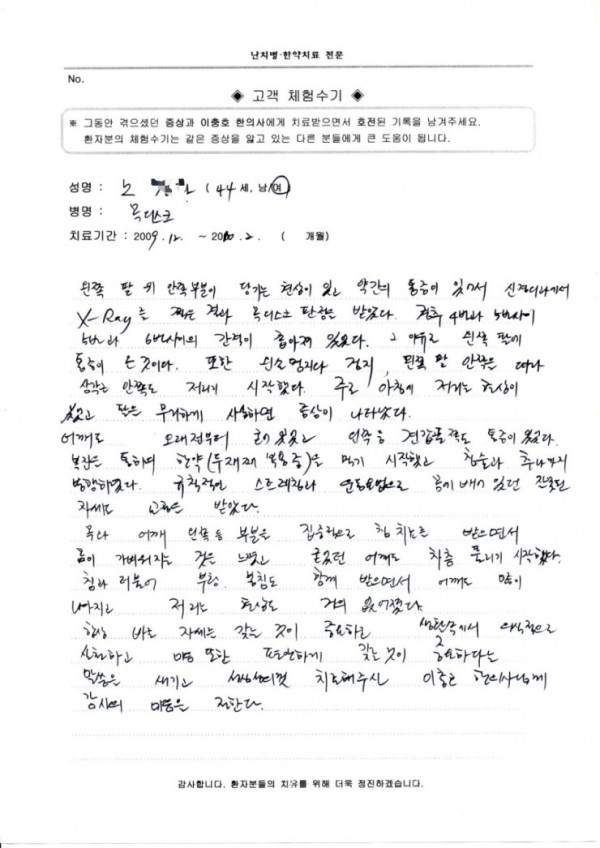 난치병·한약치료 전문
No.
◈ 고객 체험수기 ◈
※ 그동안 겪으셨던 증상과 이충호 한의사에게 치료받으면서 호전된 기록을 남겨주세요.
환자분의 체험수기는 같은 증상을 앓고 있는 다른 분들에게 큰 도움이 됩니다.
성명 : 노 (44 세, 남/여)
병명 : 목디스크
치료기간 : 2009. 12. ~ 2010. 2. ( 개월)
왼쪽 팔 뒤 안쪽부분이 당기는 현상이 있고 약간의 통증이 있어서
X-Ray를 찍은 결과 목디스크 판정을 받았다. 경추 4번과 5번사이
5번과 6번사이의 간격이 좁아져 있었다. 그 이유로 왼쪽 팔에
통증이 온 것이다. 또한 왼손 엄지와 검지, 왼쪽 팔 안쪽은 따라
안쪽도 저리기 시작했다. 주로 아침에 저리는 현상이
있었고 팔을 무겁게 사용하면 증상이 나타났다.
어깨도 오래전부터 있었고 왼쪽 등 견갑골쪽도 통증이 있었다.
통하여 한약(두재재 복용중)을 먹기 시작했고 침술과 추나까지
병행하였다. 규칙적인 스트레칭과 운동요법으로 몸에 배어 있던 잘못된
자세도 교정을 받았다.
목과 어깨 왼쪽 등 부분을 집중적으로 침 치료를 받으면서
몸이 가벼워지는 것을 느꼈고 굳었던 어깨도 차츰 풀리기 시작했다.
침과 더불어 부항, 봉침도 함께 받으면서 어깨도 많이
나아지고 저리는 현상도 거의 없어졌다.
항상 바른 자세를 갖는 것이 중요하고 생활속에서 의식적으로
실천하고 마음 또한 편안하게 갖는 것이 중요하다는
말씀을 새기고 성심성의껏 치료해주신 이충호 한의사님께
감사의 마음을 전한다.
감사합니다. 환자분들의 치유를 위해 더욱 정진하겠습니다.